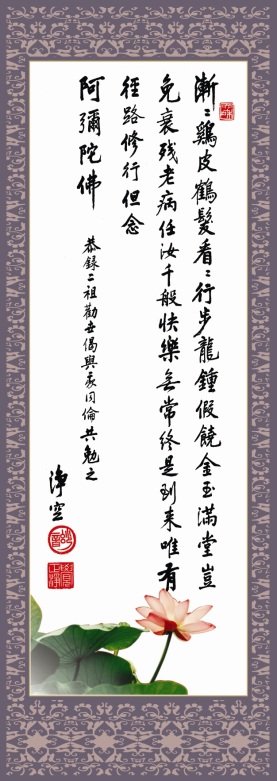 漸〻鷄皮鶴髮看〻行步龍鍾假饒金玉滿堂豈
免衰残老病任汝千般快樂無常終是到来唯有
徑路修行但念
阿彌陀佛
恭録二祖勸世偈與我同倫共勉之
淨空